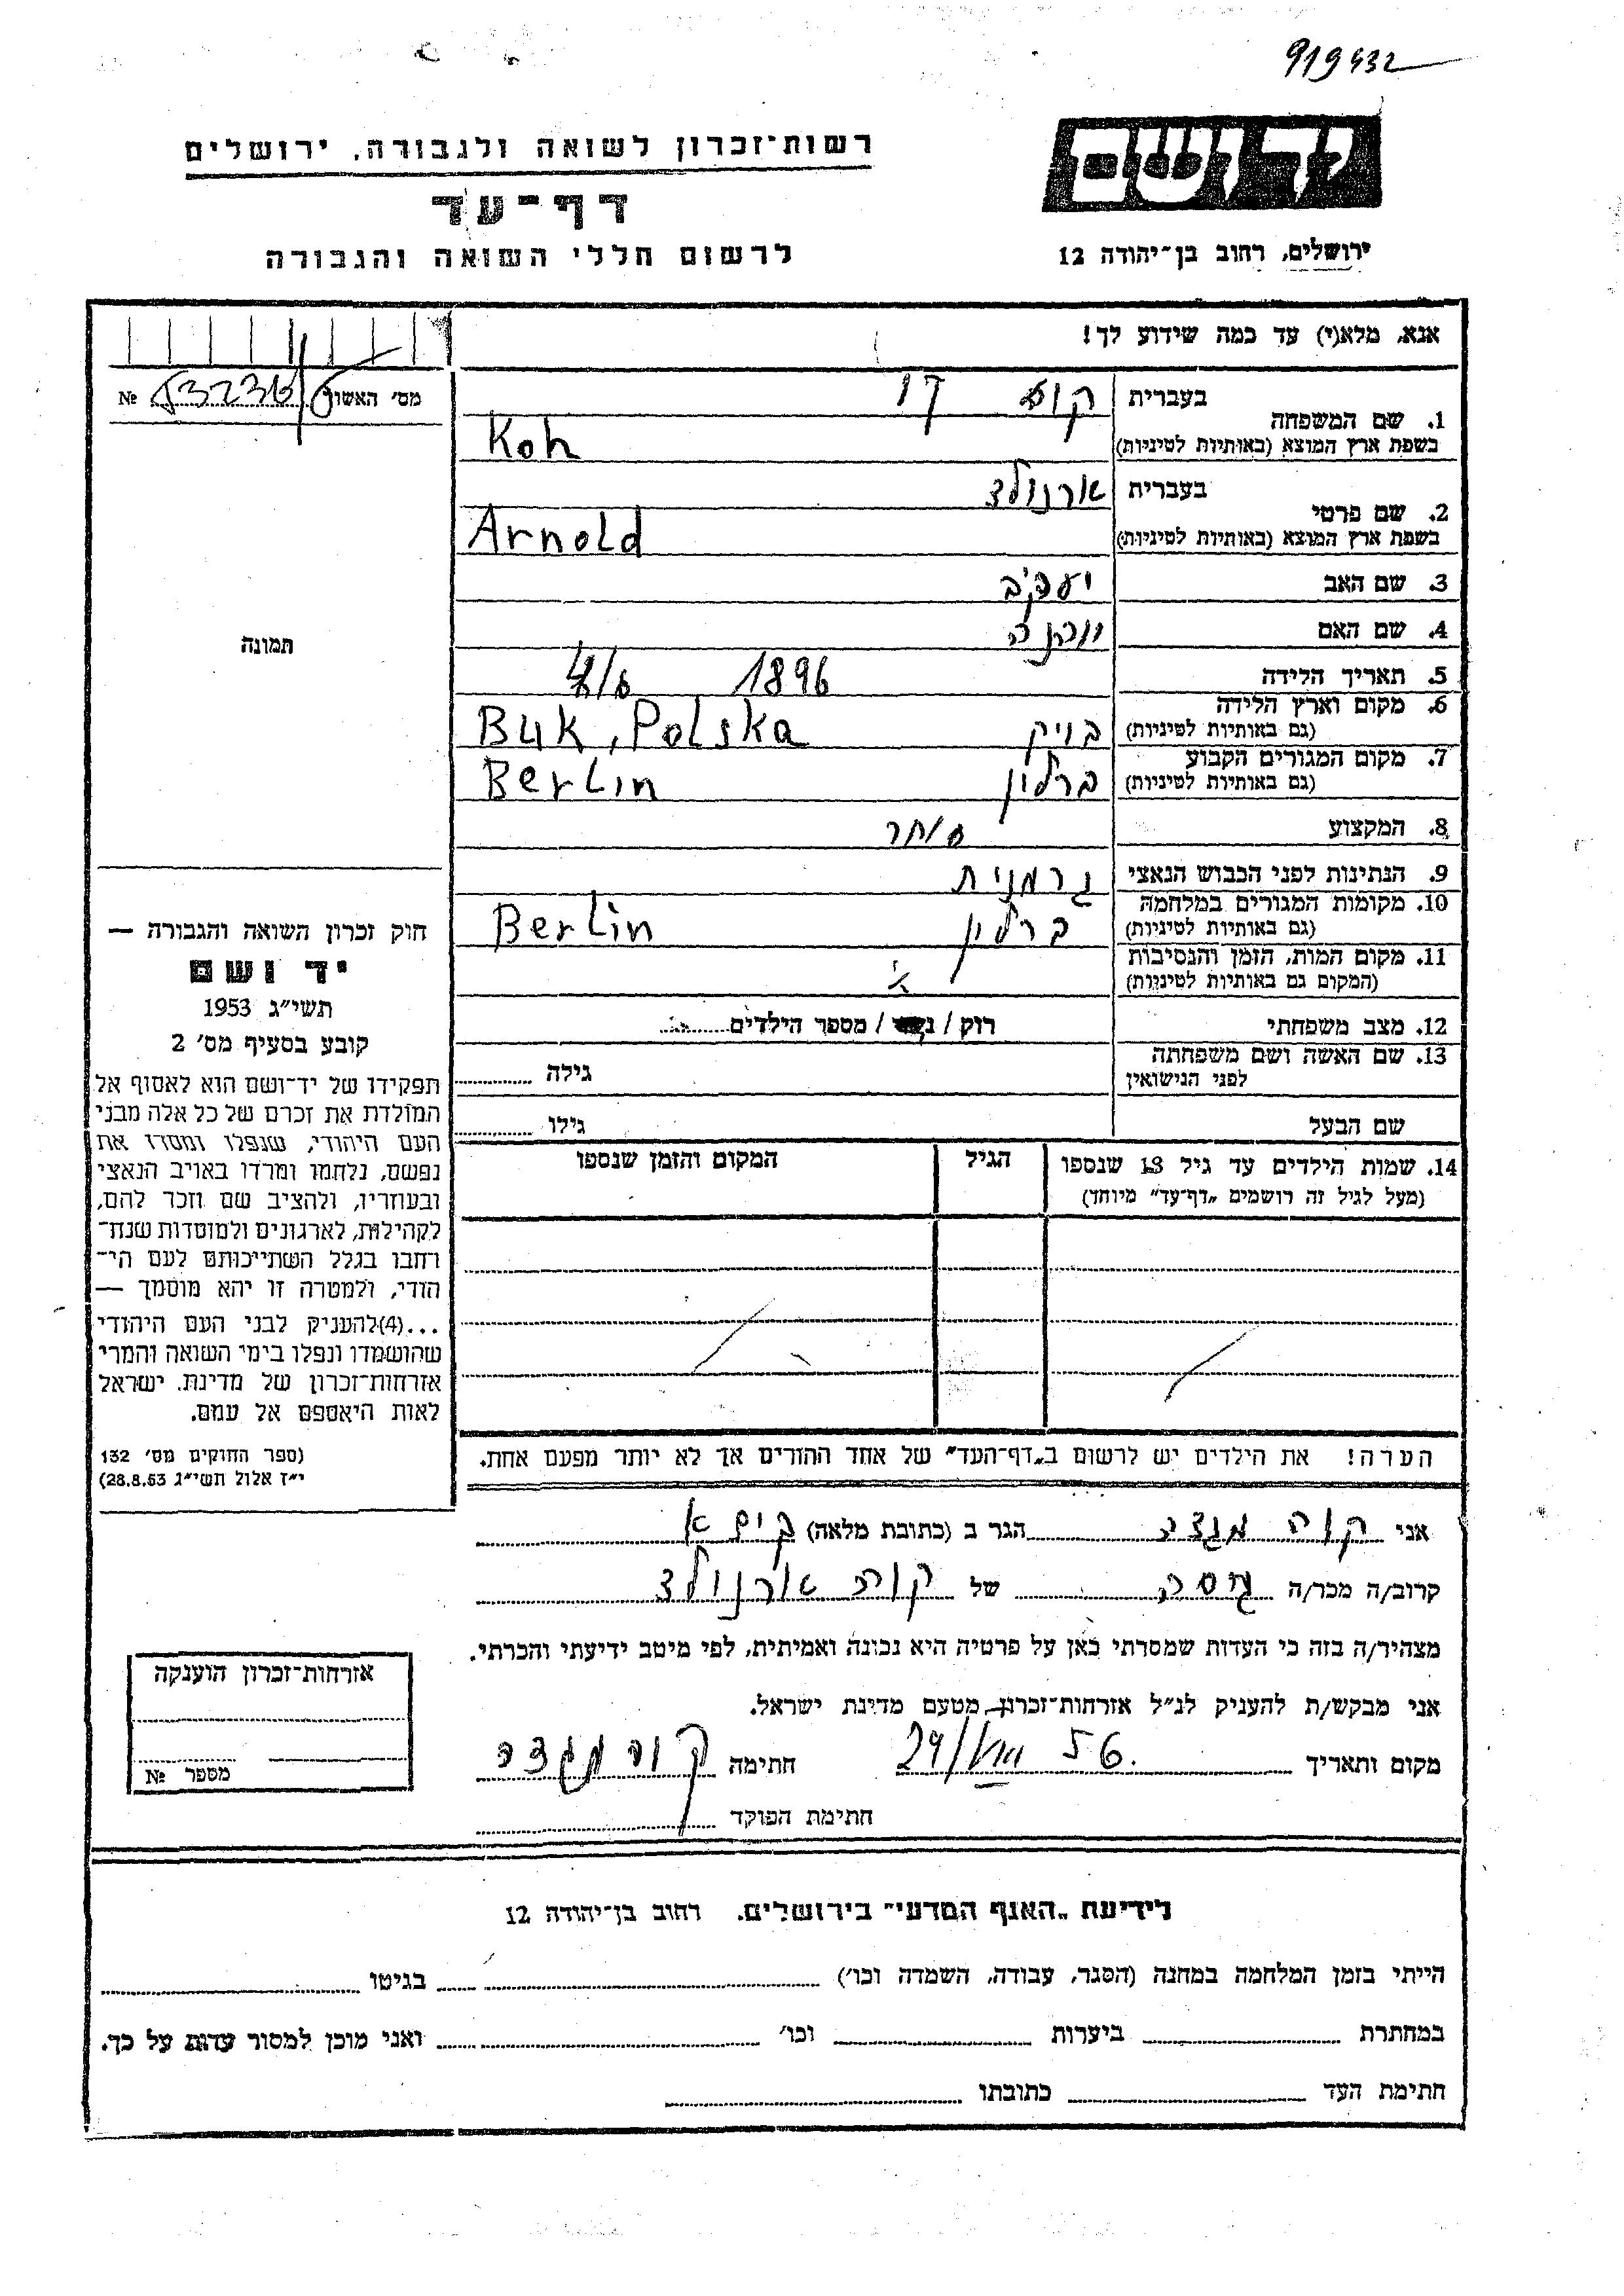 919432
רשות־זכרון לשואה ולגבורה, ירושלים
דף־עד
לרשום חללי השואה והגבורה
יד ושם
ירושלים, רחוב בן־יהודה 12
אנא, מלא(י) עד כמה שידוע לך!
מס׳ האשור №
1. שם המשפחה
בעברית
בשפת ארץ המוצא (באותיות לטיניות) Koh
2. שם פרטי
בעברית ארנולד
בשפת ארץ המוצא (באותיות לטיניות) Arnold
3. שם האב יעקב
4. שם האם
5. תאריך הלידה 1896
6. מקום וארץ הלידה
(גם באותיות לטיניות) בויק Buk, Polska
7. מקום המגורים הקבוע
(גם באותיות לטיניות) ברלין Berlin
8. המקצוע סוחר
9. הנתינות לפני הכבוש הנאצי גרמנית
10. מקומות המגורים במלחמה
(גם באותיות לטיניות) ברלין Berlin
11. מקום המות, הזמן והנסיבות
(המקום גם באותיות לטיניות)
12. מצב משפחתי רוק / נשוי / מספר הילדים
13. שם האשה ושם משפחתה
לפני הנישואין גילה
שם הבעל גילו
14. שמות הילדים עד גיל 13 שנספו
(מעל לגיל זה רושמים „דף־עד״ מיוחד)
הגיל
המקום והזמן שנספו
הערה! את הילדים יש לרשום ב„דף־העד״ של אחד ההורים אך לא יותר מפעם אחת.
תמונה
חוק זכרון השואה והגבורה —
יד ושם
תשי״ג 1953
קובע בסעיף מס׳ 2
תפקידו של יד־ושם הוא לאסוף אל
המולדת את זכרם של כל אלה מבני
העם היהודי, שנפלו ומסרו את
נפשם, נלחמו ומרדו באויב הנאצי
ובעוזריו, ולהציב שם וזכר להם,
לקהילות, לארגונים ולמוסדות שנח־
רחבו בגלל השתייכותם לעם הי־
הודי, ולמטרה זו יהא מוסמך —
...(4)להעניק לבני העם היהודי
שהושמדו ונפלו בימי השואה והמרי
אזרחות־זכרון של מדינת ישראל
לאות היאספם אל עמם.
(ספר החוקים מס׳ 132
י״ז אלול תשי״ג 28.8.53)
אני הגר ב (כתובת מלאה)
קרוב/ה מכר/ה גיסה של ארנולד
מצהיר/ה בזה כי העדות שמסרתי כאן על פרטיה היא נכונה ואמיתית, לפי מיטב ידיעתי והכרתי.
אני מבקש/ת להעניק לנ״ל אזרחות־זכרון מטעם מדינת ישראל.
מקום ותאריך 56. חתימה
חתימת הפוקד
אזרחות־זכרון הוענקה
מספר №
לידיעת „האגף המדעי״ בירושלים. רחוב בן־יהודה 12
הייתי בזמן המלחמה במחנה (הסגר, עבודה, השמדה וכו׳) בגיטו
במחתרת ביערות וכו׳ ואני מוכן למסור עדות על כך.
חתימת העד כתובתו